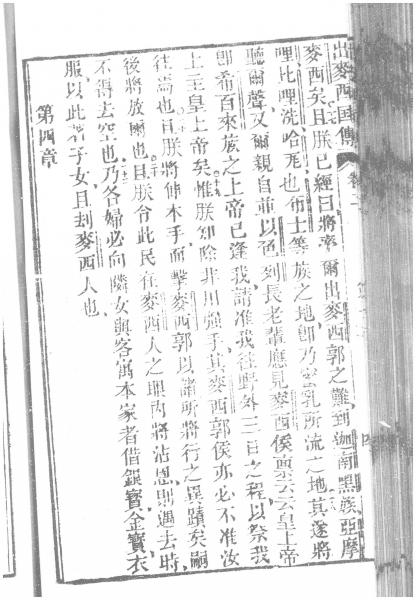 出麥西國傳 卷二
麥西矣且朕已經曰將率爾出麥西郭之難到迦南黑族亞摩
哩比哩洗哈死也布士等族之地即乃蜜乳所流之地其遂將
聽爾聲又爾親自並以色列長老輩應見麥西侯稟云云皇上帝
即希百來族之上帝已逢我請准我往野外三日之程以祭我
上主皇上帝矣惟朕知除非用強手其麥西郭侯亦必不准汝
往焉也且朕將伸本手而擊麥西郭以諸所將行之異蹟矣嗣
後將放爾也且朕令此民在麥西人之眼內將沾恩則過去時
不得去空也乃各婦必向隣女與客寓本家者借銀寶金寶衣
服以此着子女且刦麥西人也
第四章